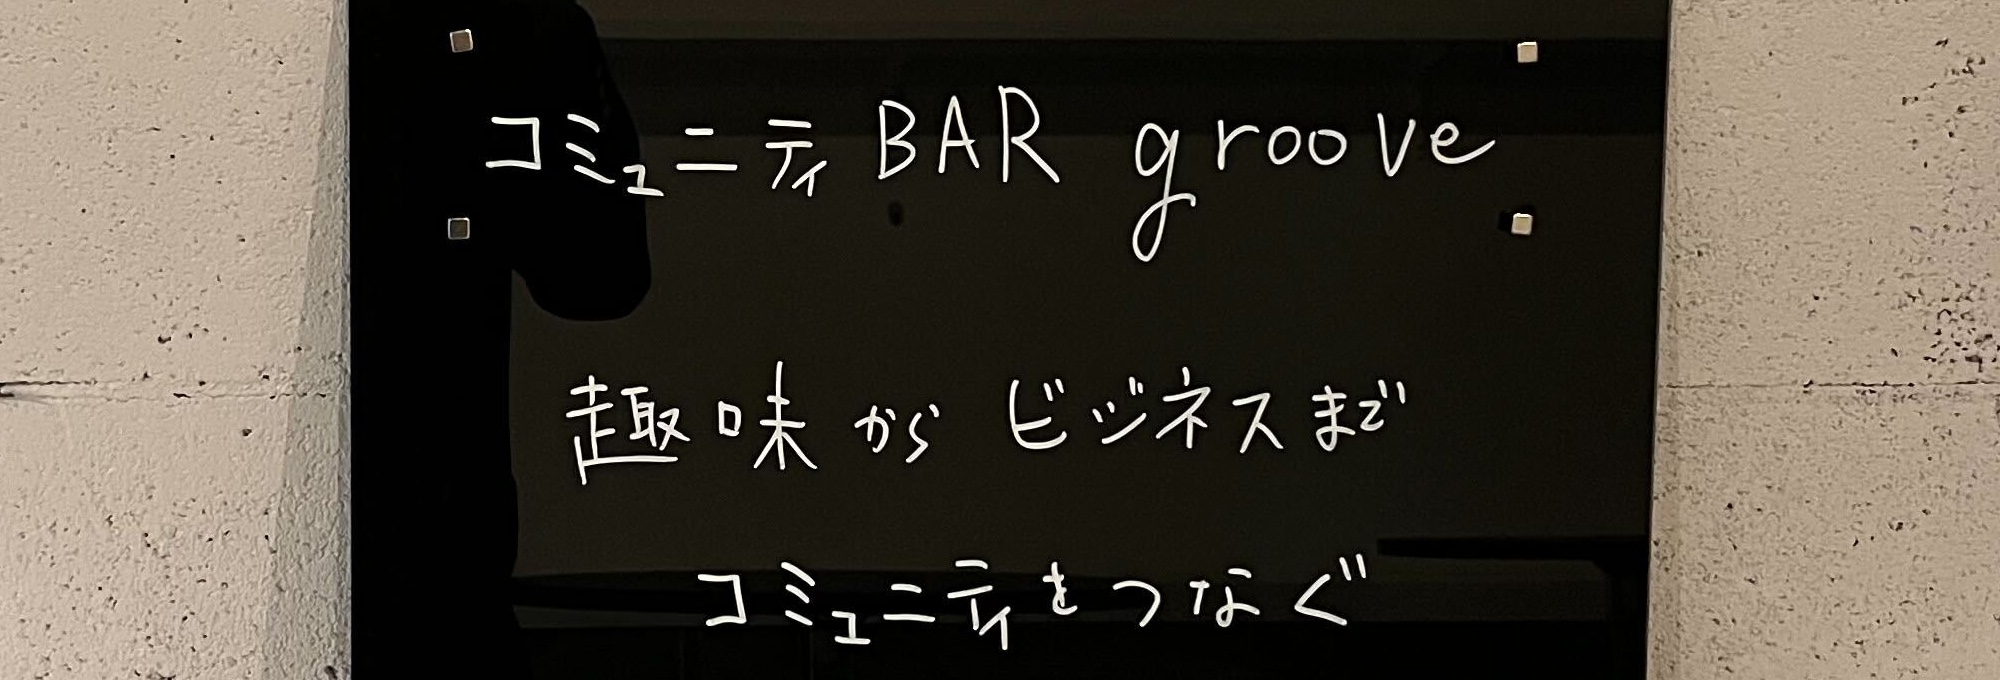 コミュニティ BAR groove
趣味から ビジネスまで
コミュニティをつなぐ